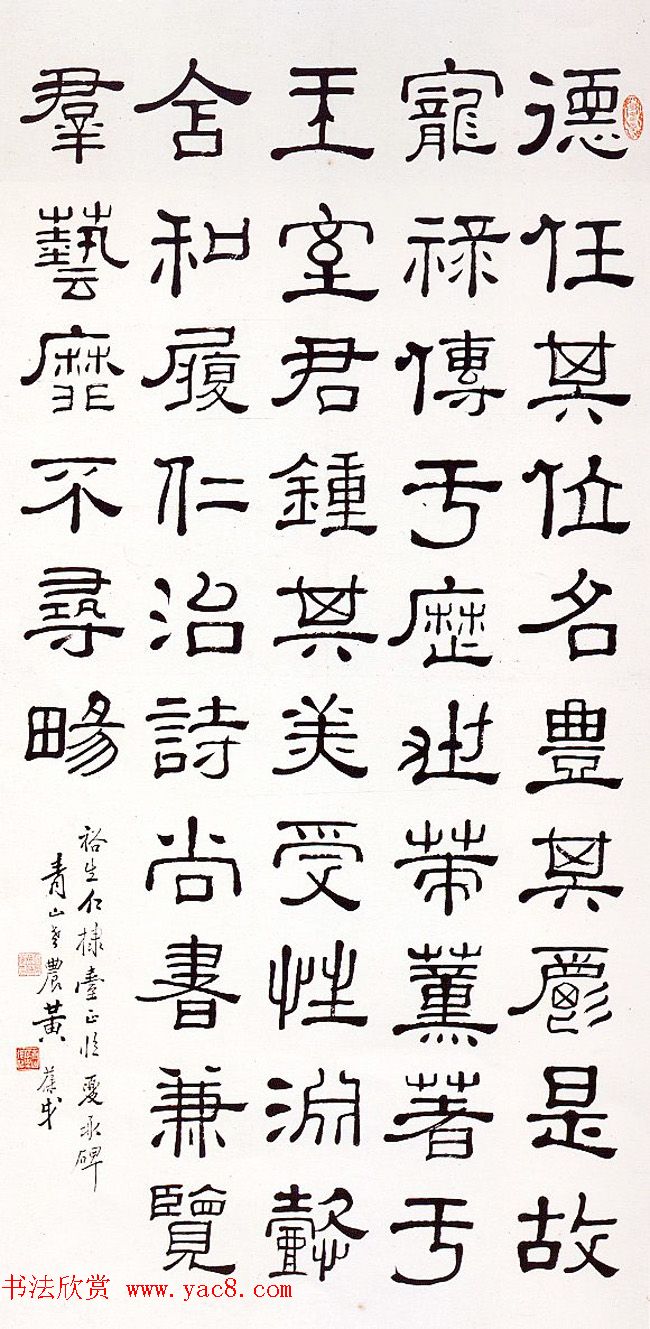 德任其位名豐其爵是故
寵祿傳于歷世策薰著于
王室君鍾其美受性淵懿
含和履仁治詩尚書兼覽
羣藝靡不尋畼
裕生仁棣臺正臨夏承碑
青山老農黃葆戉
书法欣赏 www.yac8.com